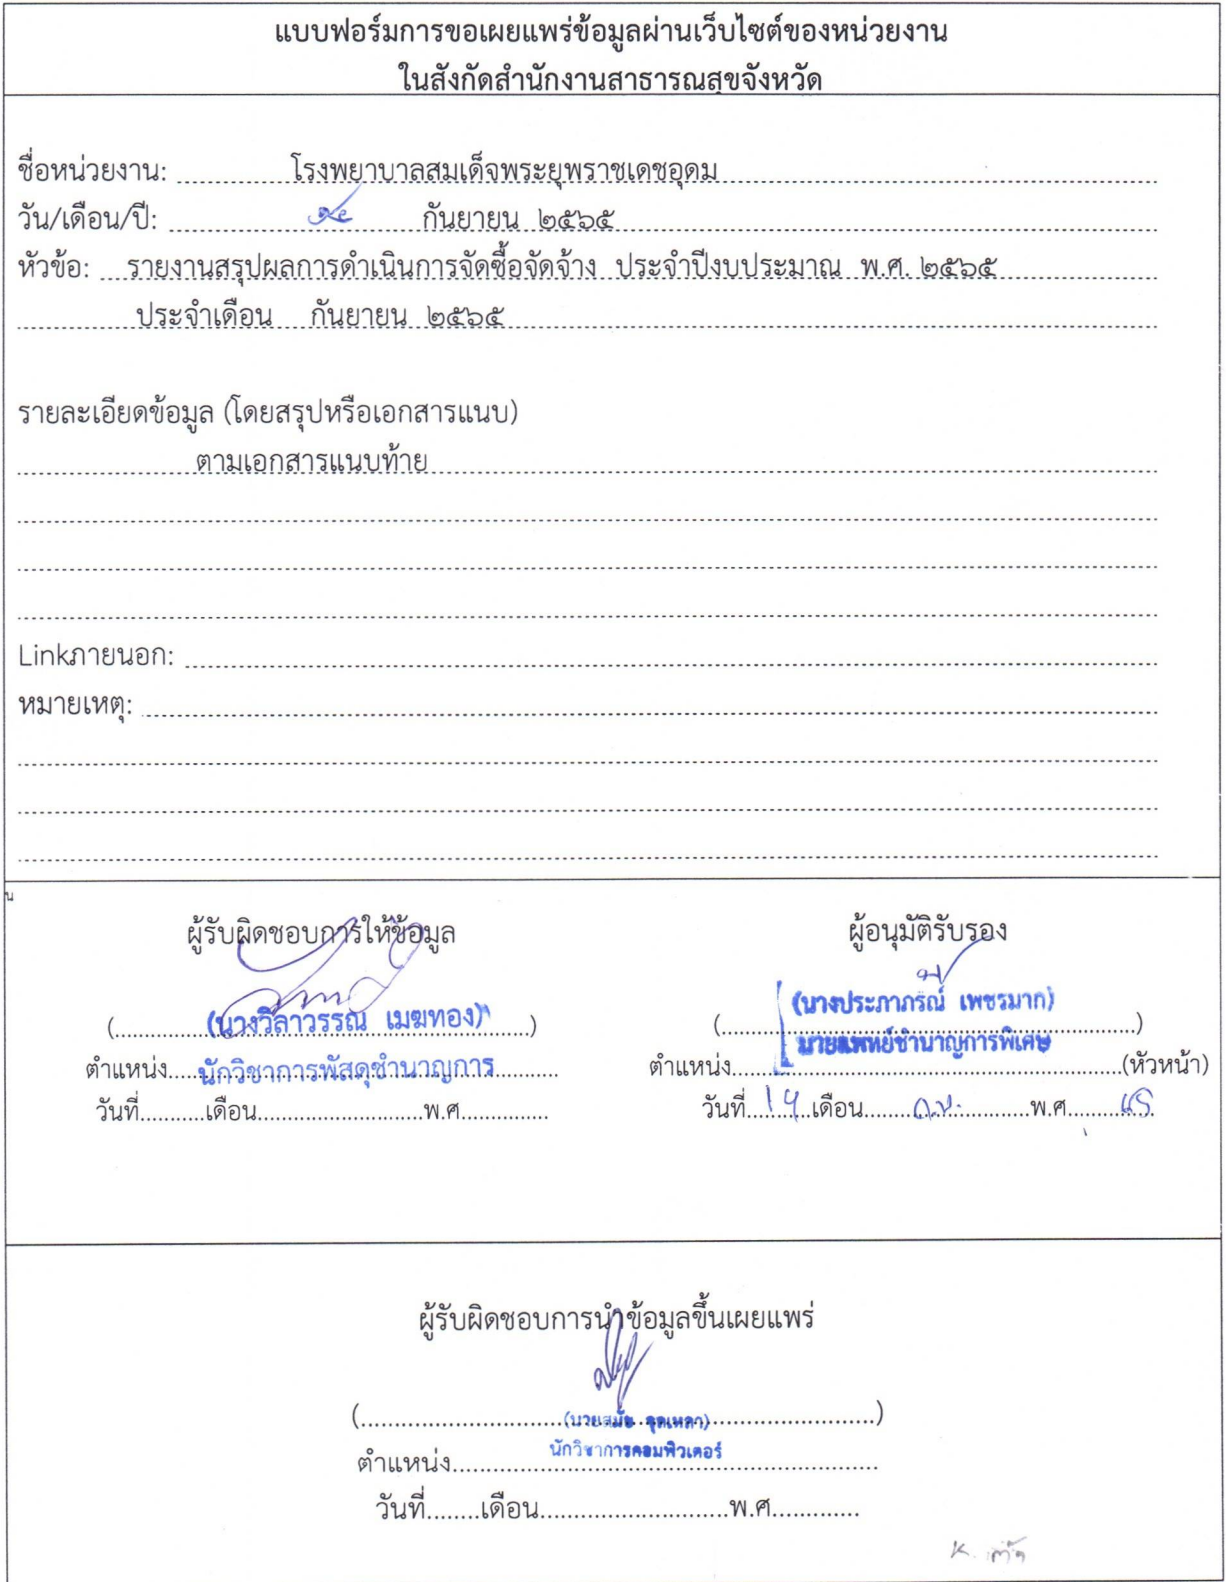 แบบฟอร์มการขอเผยแพร่ข้อมูลผ่านเว็บไซต์ของหน่วยงาน
ในสังกัดสำนักงานสาธารณสุขจังหวัด
ชื่อหน่วยงาน: โรงพยาบาลสมเด็จพระยุพราชเดชอุดม
วัน/เดือน/ปี: กันยายน ๒๕๖๕
หัวข้อ: รายงานสรุปผลการดำเนินการจัดซื้อจัดจ้าง ประจำปีงบประมาณ พ.ศ. ๒๕๖๕
ประจำเดือน กันยายน ๒๕๖๕
รายละเอียดข้อมูล (โดยสรุปหรือเอกสารแนบ)
ตามเอกสารแนบท้าย
Linkภายนอก:
หมายเหตุ:
น
ผู้รับผิดชอบการให้ข้อมูล
(นางวิลาวรรณ เมฆทอง)
ตำแหน่ง นักวิชาการพัสดุชำนาญการ
วันที่ เดือน พ.ศ.
ผู้อนุมัติรับรอง
(นางประภาภรณ์ เพชรมาก)
ตำแหน่ง นายแพทย์ชำนาญการพิเศษ (หัวหน้า)
วันที่ เดือน พ.ศ.
ผู้รับผิดชอบการนำข้อมูลขึ้นเผยแพร่
(นายสมัย)
ตำแหน่ง นักวิชาการคอมพิวเตอร์
วันที่ เดือน พ.ศ.